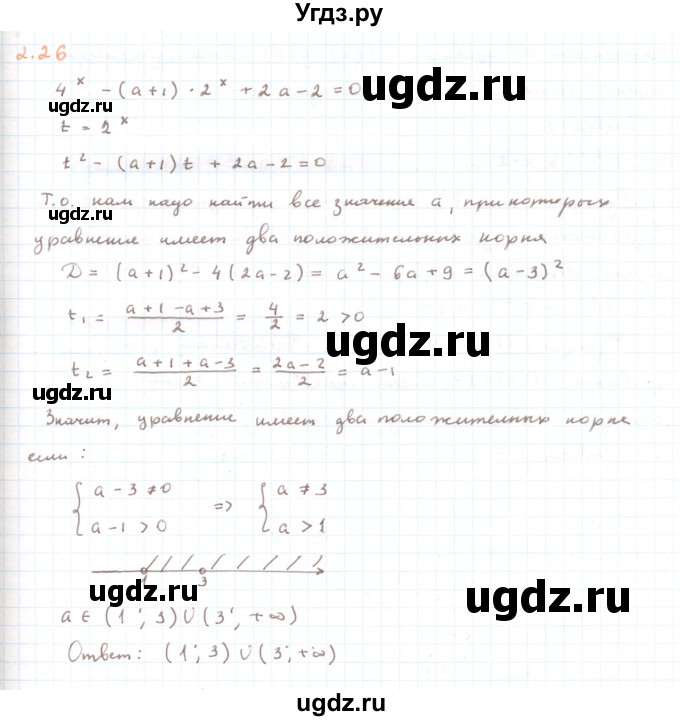 Угдз.ру
2.26
4^x - (a+1) · 2^x + 2a - 2 = 0
ugdz.ru
ugdz.ru
t = 2^x
t² - (a+1)t + 2a - 2 = 0
Т.о. нам надо найти все значения a, при которых
уравнение имеет два положительных корня
D = (a+1)² - 4(2a-2) = a² - 6a + 9 = (a-3)²
t₁ = (a+1-a+3)/2 = 4/2 = 2 > 0
ugdz.ru
t₂ = (a+1+a-3)/2 = (2a-2)/2 = a-1
ugdz.ru
Значит, уравнение имеет два положительных корня
если:
{ a - 3 ≠ 0 => { a ≠ 3
{ a - 1 > 0 { a > 1
1 3
ugdz.ru
ugdz.ru
a ∈ (1; 3) ∪ (3; +∞)
Ответ: (1; 3) ∪ (3; +∞)
ugdz.ru